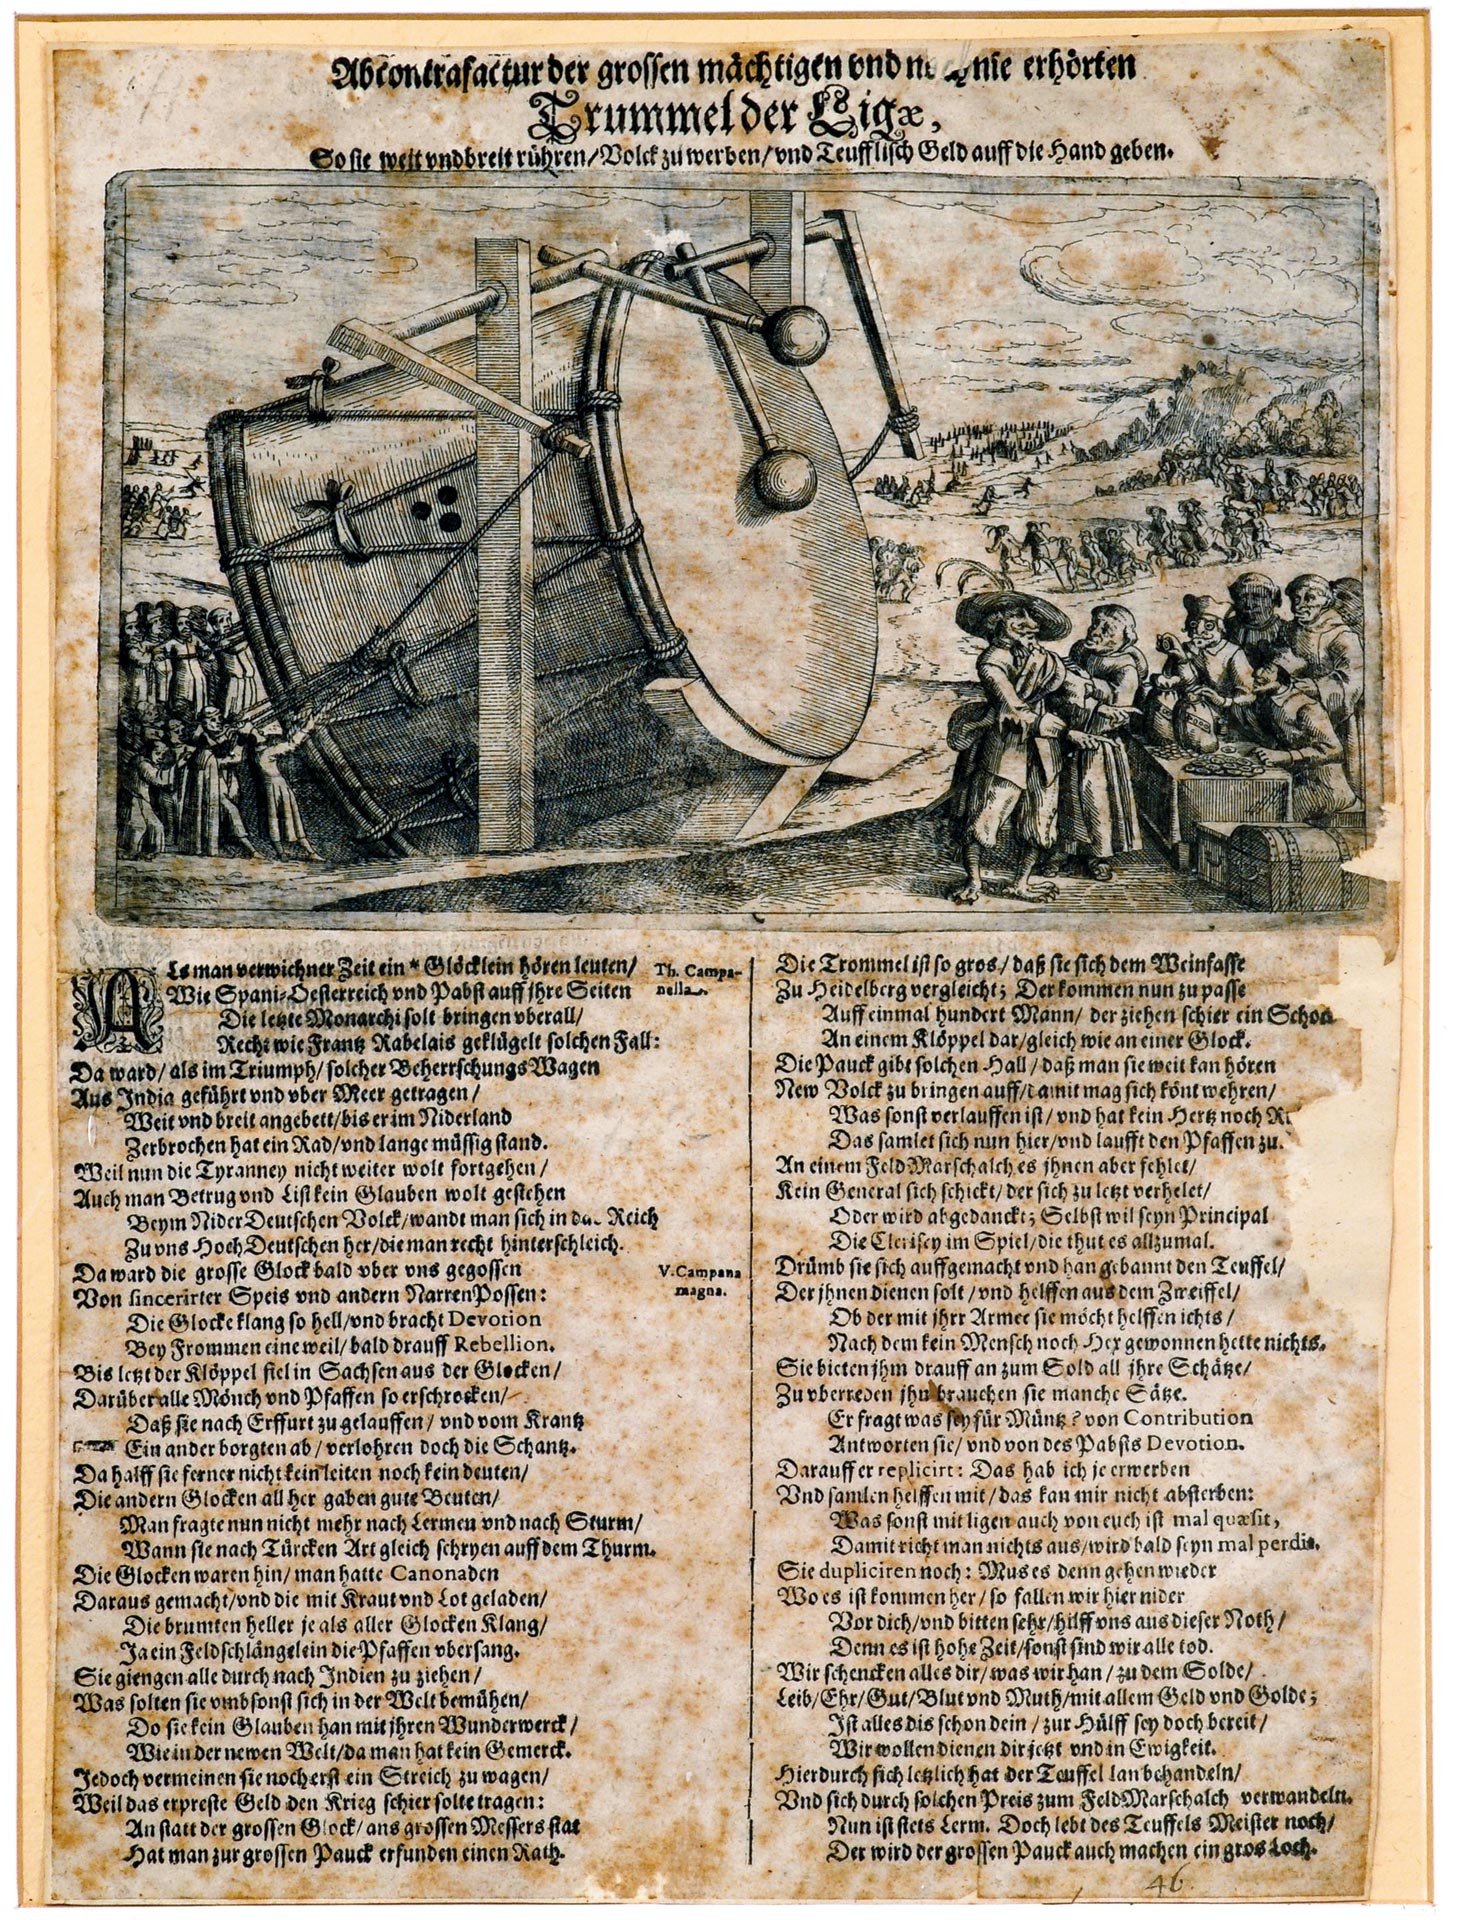 Abcontrafactur der grossen mächtigen vnd nie erhörten
Trummel der Ligæ,
So sie weit vnd breit rühren/ Volck zu werben/ vnd Teufflisch Geld auff die Hand geben.
ALs man verwichner Zeit ein * Glöcklein hören leuten/
Th. Campanella.
Wie Spani-Oesterreich vnd Pabst auff jhre Seiten
Die letzte Monarchi solt bringen vberall/
Recht wie Frantz Rabelais geklügelt solchen Fall:
Da ward/ als im Triumph/ solcher Beherrschungs Wagen
Aus India geführt vnd vber Meer getragen/
Weit vnd breit angebett/ bis er im Niderland
Zerbrochen hat ein Rad/ vnd lange müssig stand.
Weil nun die Tyranney nicht weiter wolt fortgehen/
Auch man Betrug vnd List kein Glauben wolt gestehen
Beym NiderDeutschen Volck/ wandt man sich in das Reich
Zu vns HochDeutschen her/ die man recht hinterschleich.
Da ward die grosse Glock bald vber vns gegossen
V. Campana magna.
Von sincerirter Speis vnd andern NarrenPossen:
Die Glocke klang so hell/ vnd bracht Devotion
Bey Frommen eine weil/ bald drauff Rebellion.
Bis letzt der Klöppel fiel in Sachsen aus der Glocken/
Darüber alle Mönch vnd Pfaffen so erschrocken/
Daß sie nach Erffurt zu gelauffen/ vnd vom Krantz
Ein ander borgten ab/ verlohren doch die Schantz.
Da halff sie ferner nicht kein leiten noch kein deuten/
Die andern Glocken all her gaben gute Beuten/
Man fragte nun nicht mehr nach Lermen vnd nach Sturm/
Wann sie nach Türcken Art gleich schryen auff dem Thurm.
Die Glocken waren hin/ man hatte Canonaden
Daraus gemacht/ vnd die mit Kraut vnd Lot geladen/
Die brumten heller je als aller Glocken Klang/
Ja ein Feldschlängelein die Pfaffen vbersang.
Sie giengen alle durch nach Indien zu ziehen/
Was solten sie vmbsonst sich in der Welt bemühen/
Do sie kein Glauben han mit jhren Wunderwerck/
Wie in der newen Welt/ da man hat kein Gemerck.
Jedoch vermeinen sie noch erst ein Streich zu wagen/
Weil das erpreste Geld den Krieg schier solte tragen:
An statt der grossen Glock/ ans grossen Messers stat
Hat man zur grossen Pauck erfunden einen Rath.
Die Trommel ist so gros/ daß sie sich dem Weinfasse
Zu Heidelberg vergleicht; Der kommen nun zu passe
Auff einmal hundert Mann/ der ziehen schier ein Schock
An einem Klöppel dar/ gleich wie an einer Glock.
Die Pauck gibt solchen Hall/ daß man sie weit kan hören
New Volck zu bringen auff/ damit mag sich könt wehren/
Was sonst verlauffen ist/ vnd hat kein Hertz noch
Das samlet sich nun hier/ vnd laufft den Pfaffen zu.
An einem FeldMarschalch es jhnen aber fehlet/
Kein General sich schickt/ der sich zu letzt verhelet/
Oder wird abgedanckt; Selbst wil seyn Principal
Die Clerisey im Spiel/ die thut es allzumal.
Drümb sie sich auffgemacht vnd han gebannt den Teuffel/
Der jhnen dienen solt/ vnd helffen aus dem Zweiffel/
Ob der mit jhrr Armee sie möcht helffen ichts/
Nach dem kein Mensch noch Hex gewonnen hette nichts.
Sie bieten jhm drauff an zum Sold all jhre Schätze/
Zu vberreden jhn brauchen sie manche Sätze.
Er fragt was sey für Müntz? von Contribution
Antworten sie/ vnd von des Pabsts Devotion.
Darauff er replicirt: Das hab ich je erwerben
Vnd samlen helffen mit/ das kan mir nicht absterben:
Was sonst mit ligen auch von euch ist mal quæsit,
Damit richt man nichts aus/ wird bald seyn mal perdit.
Sie dupliciren noch: Mus es denn gehen wieder
Wo es ist kommen her/ so fallen wir hier nider
Vor dich/ vnd bitten sehr/ hilff vns aus dieser Noth/
Denn es ist hohe Zeit/ sonst sind wir alle tod.
Wir schencken alles dir/ was wir han/ zu dem Solde/
Leib/ Ehr/ Gut/ Blut vnd Muth/ mit allem Geld vnd Golde;
Ist alles dis schon dein/ zur Hülff sey doch bereit/
Wir wollen dienen dir jetzt vnd in Ewigkeit.
Hierdurch sich letzlich hat der Teuffel lan behandeln/
Vnd sich durch solchen Preis zum FeldMarschalch verwandeln.
Nun ist stets Lerm. Doch lebt des Teuffels Meister noch/
Der wird der grossen Pauck auch machen ein gros Loch.
46.